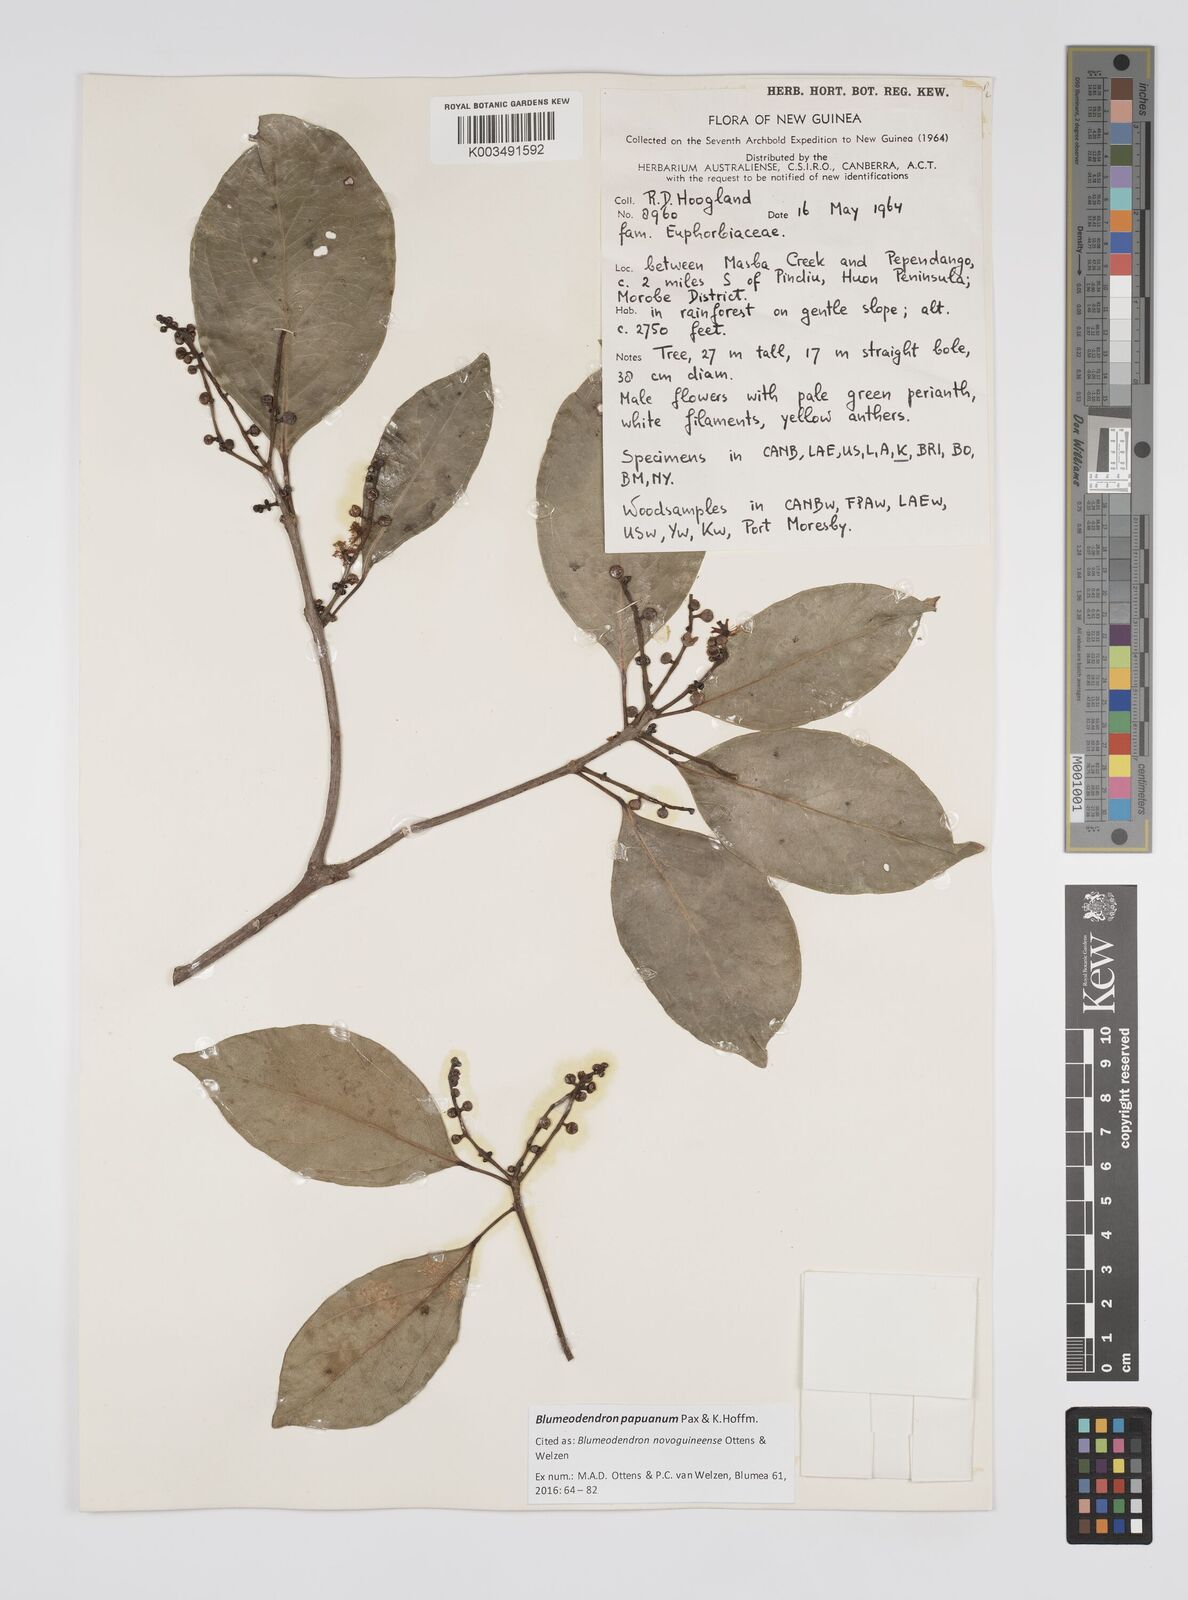 HERB. HORT. BOT. REG. KEW.
ROYAL BOTANIC GARDENS KEW
K003491592
FLORA OF NEW GUINEA
Collected on the Seventh Archbold Expedition to New Guinea (1964)
Distributed by the
HERBARIUM AUSTRALIENSE, C.S.I.R.O., CANBERRA, A.C.T.
with the request to be notified of new identifications
Coll. R.D. Hoogland
No. 8960 Date 16 May 1964
fam. Euphorbiaceae.
Loc. between Masba Creek and Pependango,
c. 2 miles S of Pindiu, Huon Peninsula;
Morobe District.
Hab. in rainforest on gentle slope; alt.
c. 2750 feet.
Notes Tree, 27 m tall, 17 m straight bole,
38 cm diam.
Male flowers with pale green perianth,
white filaments, yellow anthers.
Specimens in CANB, LAE, US, L, A, K, BRI, BO,
BM, NY.
Woodsamples in CANBw, FPAw, LAEw,
USw, Yw, Kw, Port Moresby.
Blumeodendron papuanum Pax & K.Hoffm.
Cited as: Blumeodendron novoguineense Ottens &
Welzen
Ex num.: M.A.D. Ottens & P.C. van Welzen, Blumea 61,
2016: 64 – 82
Density
Don Williams
M001001
centimeters
Royal Botanic Gardens
Kew
0 1 2 3 4 5 6 7 8 9 10
cm
copyright reserved